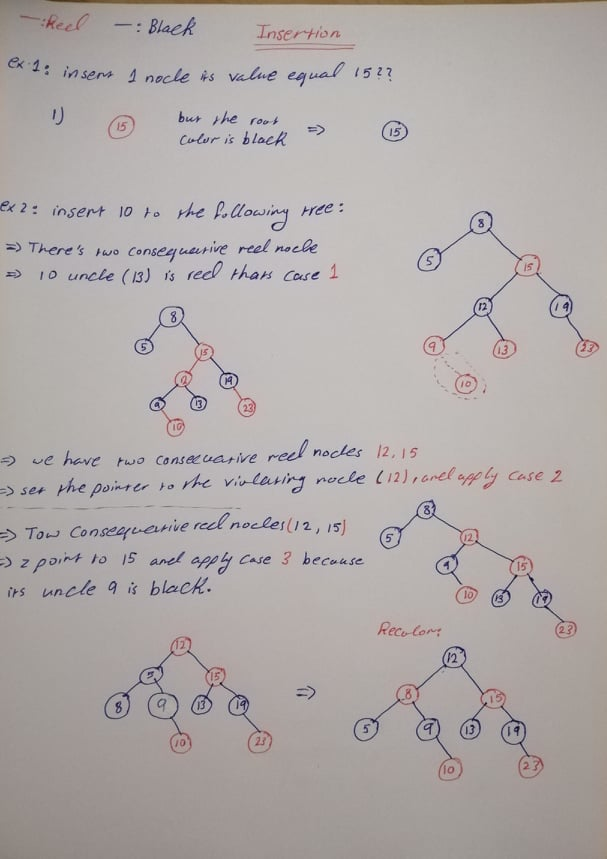 —: Red —: Black
Insertion
ex.1: insert 1 node its value equal 15??
1)
15
but the root
color is black
=>
15
ex 2: insert 10 to the following tree:
=> There's two consequative red node
=> 10 uncle (13) is red thats case 1
8
5 15
12 19
9 13 23
10
8
5 15
12 19
9 13 23
10
=> we have two consecuative red nodes 12, 15
=> set the pointer to the violating node (12), and apply case 2
=> Tow Consequative red nodes (12, 15)
=> z point to 15 and apply case 3 because
its uncle 9 is black.
8
5 12
9 15
10 13 19
23
Recolor:
12
5 15
8 9 13 19
10 23
=>
12
8 15
5 9 13 19
10 23